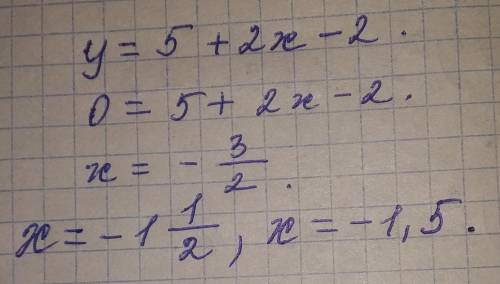 y = 5 + 2x - 2.
0 = 5 + 2x - 2.
x = - 3/2.
x = -1 1/2, x = -1,5.